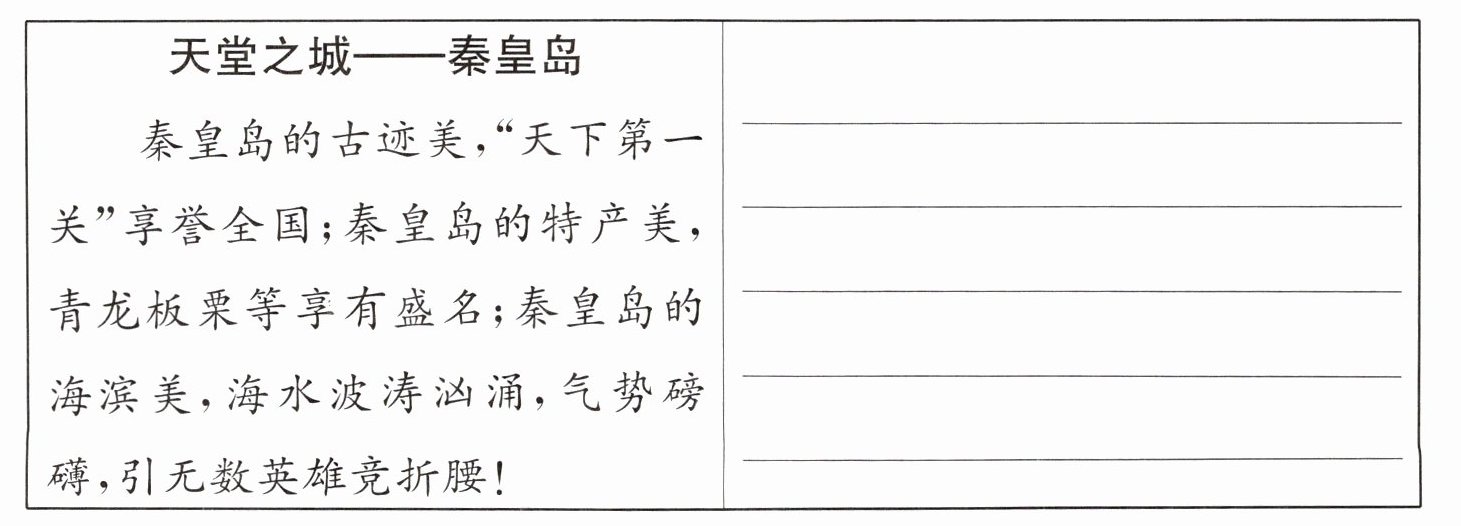 天堂之城——秦皇岛
秦皇岛的古迹美,“天下第一
关”享誉全国;秦皇岛的特产美,
青龙板栗等享有盛名;秦皇岛的
海滨美,海水波涛汹涌,气势磅
礴,引无数英雄竞折腰!